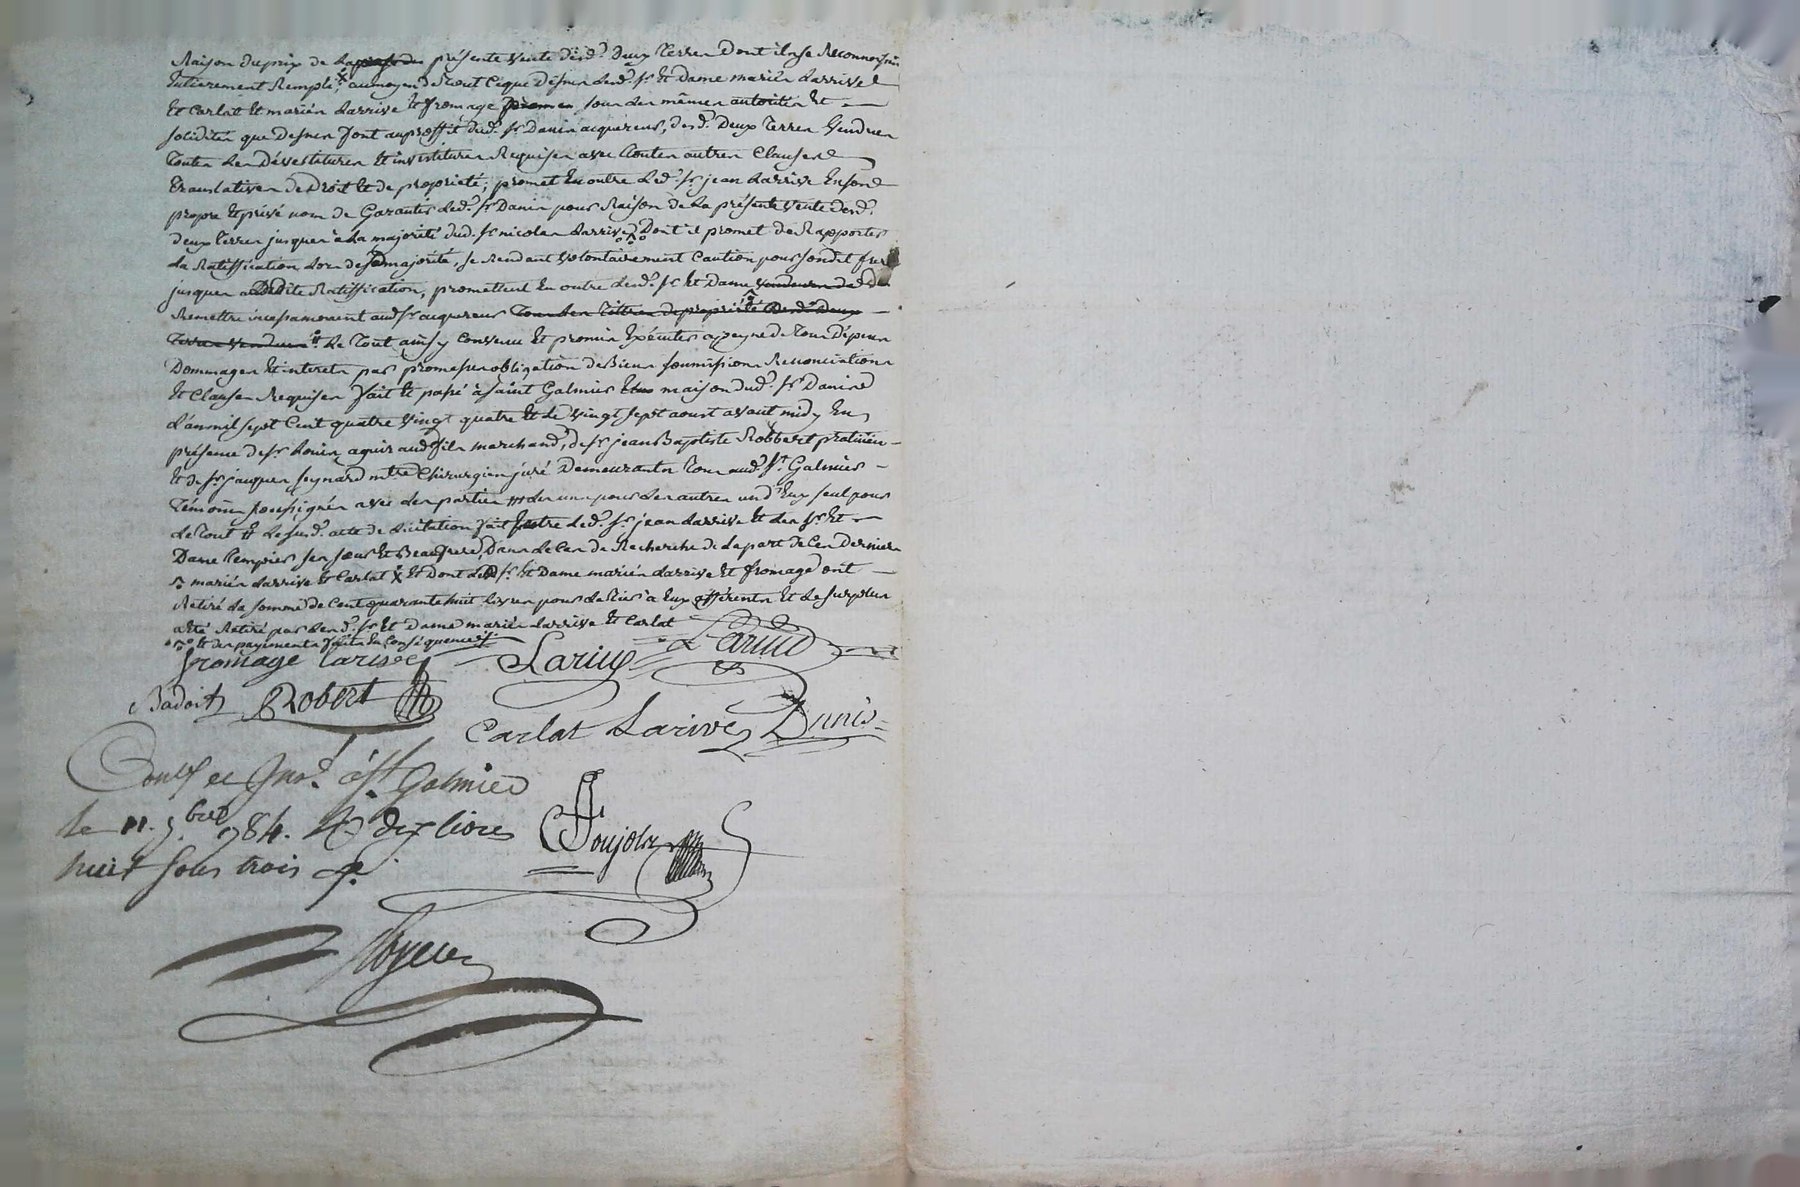 Raison du prix de la présente vente desd. deux terres dont ils se reconnoissent
Entierement Remplis, au moyen de tout ce que dessus lesd. sr. Et Dame mariés Larrive
Et Carlat Et mariés Larrive Et fromage sous les mêmes autorités Et
solidités que dessus font au proffit dud. sr. Danis acquereur, desd. Deux terres Vendues
toutes les Dévestitures Et investitures Requises avec toutes autres Clauses
translatives de Droit Et de proprieté; promet En outre led. sr. jean Larrive En son
propre Et privé nom de Garantir led. sr. Danis pour Raison de La présente Vente desd.
deux terres jusques à la majorité dud. sr. nicolas Larrive Dont il promet de Rapporter
La Ratiffication lors de sa majorité, se Rendant Volontairement Caution pour sondit frere
jusques a Ladite Ratiffication, promettent En outre lesd. sr. Et Dame vendeurs de
Remettre incessamment aud. sr. acquereur tous les tittres de proprieté desd. Deux
terres vendues Le tout ainsy Convenu Et promis Exécuter a peyne de tous Dépens
Dommages Et interets par promesse obligation de Biens soumissions Renonciations
Et Clauses Requises fait Et passé à saint Galmier maison dud. sr. Danis
L'an mil sept Cent quatre Vingt quatre Et le Vingt sept aoust avant midy En
présence de sr. aud. fils marchand, de sr. jean Baptiste Robbert praticien
Et de sr. jacques seynard mtre. Chirurgien juré Demeurants tous aud. St. Galmier
Témoins soussignés avec les parties les uns pour les autres un d'Eux seul pour
le tout Le susd. acte de licitation fait Entre led. sr. jean Larrive Et les sr. Et
Dame tempier ses sœur Et Beaufrere, Dans le Cas de Recherche de la part de Ces Derniers
mariés Larrive Et Carlat Et Dont lesd. sr. Et Dame mariés Larrive Et fromage ont
Retiré La somme de Cent quarante huit livres pour le tier à Eux afférents Et le surplus
a été Retiré par lesd. sr. Et Dame mariés Larrive Et Carlat
Et des payements faits En Conséquence
fromage Larive Larive Larive
Badoit Robert
Carlat Larive Danis
Conlé et Jns. à St. Galmier
le 11. 784. dix livres
huit sols trois d.
Poujols